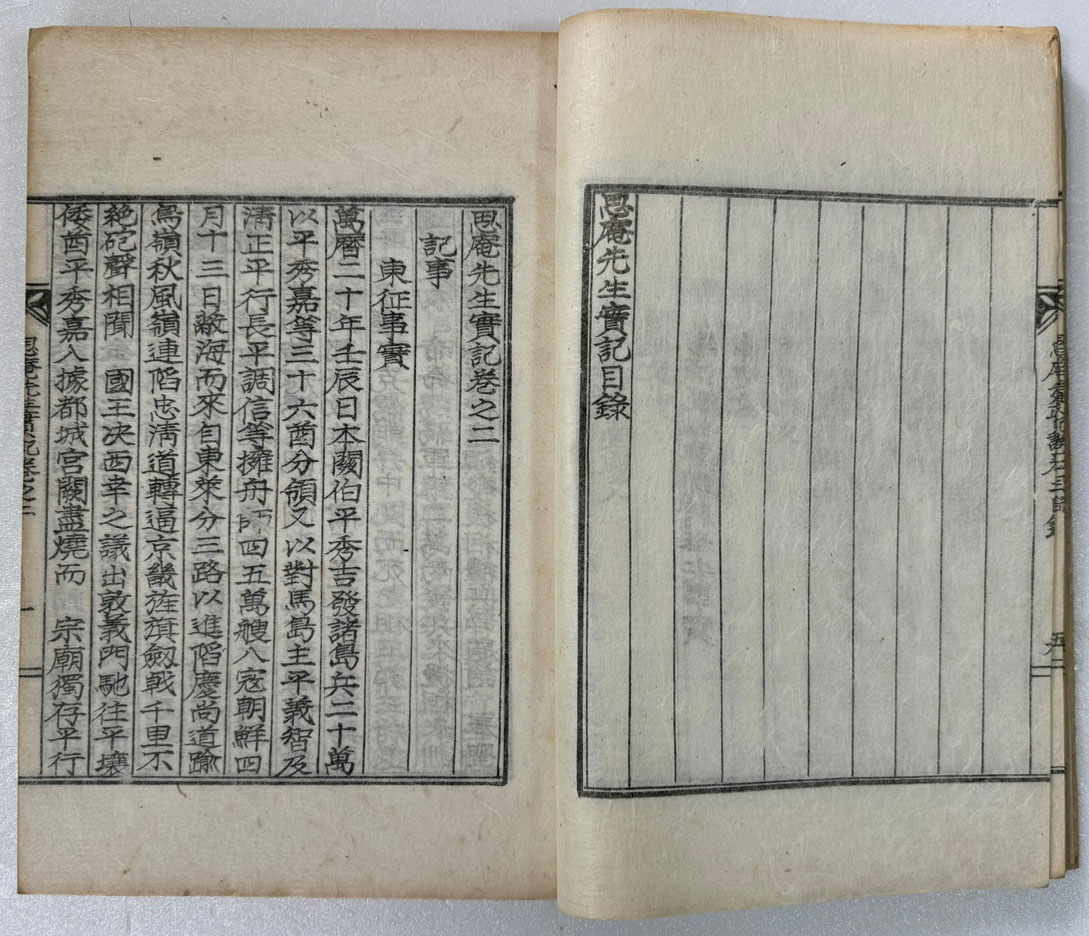 思庵先生實記目錄
思庵先生實記卷之二
記事
東征事實
萬曆二十年壬辰日本關伯平秀吉發諸島兵二十萬
以平秀嘉等三十六酋分領又以對馬島主平義智及
淸正平行長平調信等擁舟師四五萬艘入寇朝鮮四
月十三日蔽海而來自東萊分三路以進陷慶尙道踰
鳥嶺秋風嶺連陷忠淸道轉逼京畿旌旗劒戟千里不
絶砲聲相聞 國王决西幸之議出敦義門馳往平壤
倭酋平秀嘉入據都城宮闕盡燒而 宗廟獨存平行
思庵先生實記卷之二 一